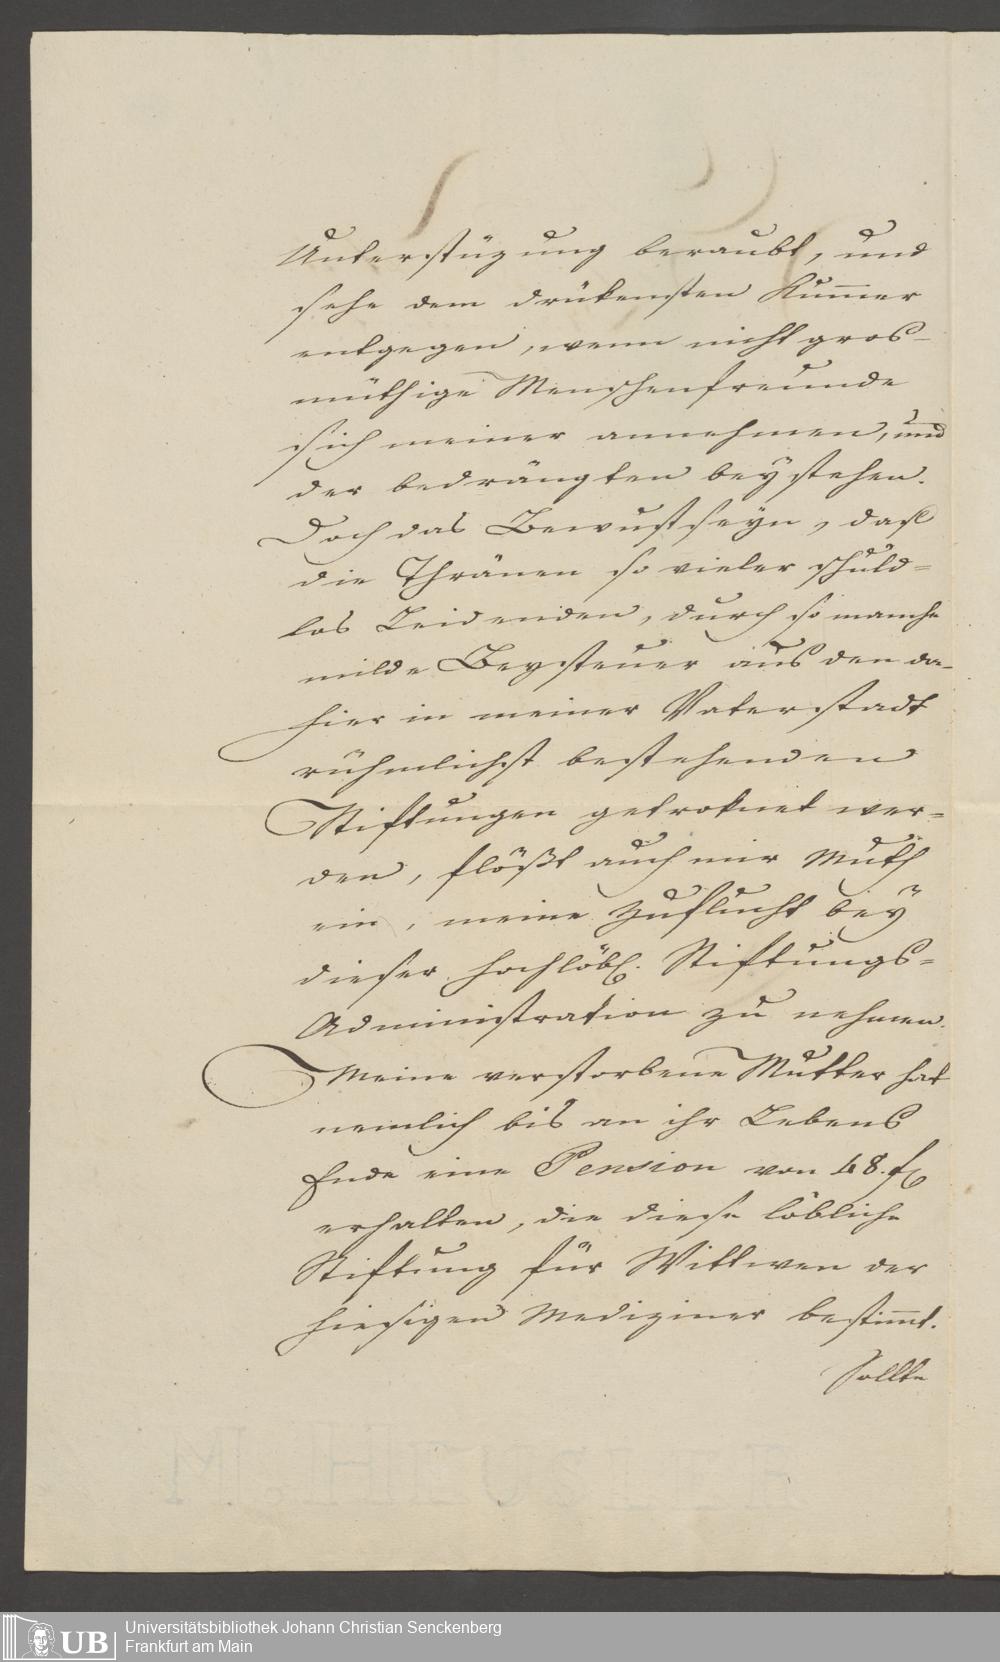 Unterstüzung beraubt, und
sehe dem drükensten Kum̄er
entgegen, wenn nicht gros-
müthige Menschenfreunde
sich meiner annehmen, und
der bedrängten beystehen.
Doch das Bewustseyn, daß
die Thränen so vieler schuld=
los Leidenden, durch so manche
milde Beysteuer aus den da-
hier in meiner Vaterstadt
rühmlichst bestehenden
Stiftungen getroknet wer=
den, flößt auch mir Muth
ein, meine Zuflucht bey
dieser hochlöbl. Stiftungs=
Administration zu nehmen.
Meine verstorbene Mutter hat
nemlich bis an ihr Lebens
Ende eine Pension von 48. fl
erhalten, die diese löbliche
Stiftung für Wittwen der
hiesigen Mediziner bestim̄t.
Sollte
UB
Universitätsbibliothek Johann Christian Senckenberg
Frankfurt am Main